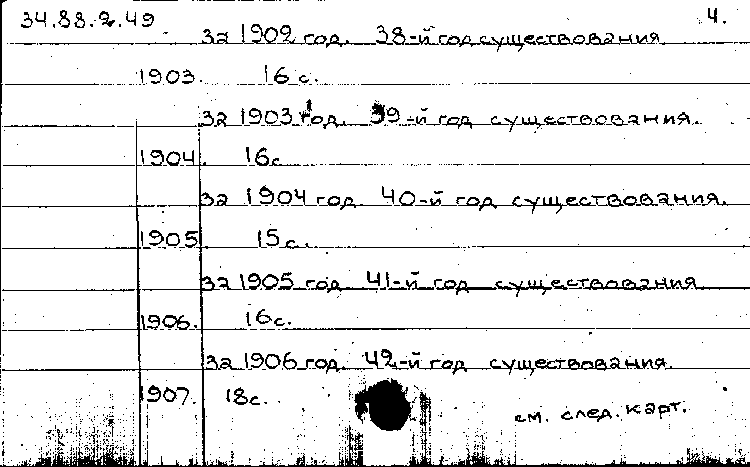 34.88.2.49 4.
за 1902 год. 38-й год существования
1903. 16 с.
за 1903 год. 39-й год существования.
1904. 16с
за 1904 год. 40-й год существования.
1905 15 с.
за 1905 год 41-й год существования
1906. 16с.
за 1906 год. 42-й год существования.
1907. 18с.
см. след. карт.